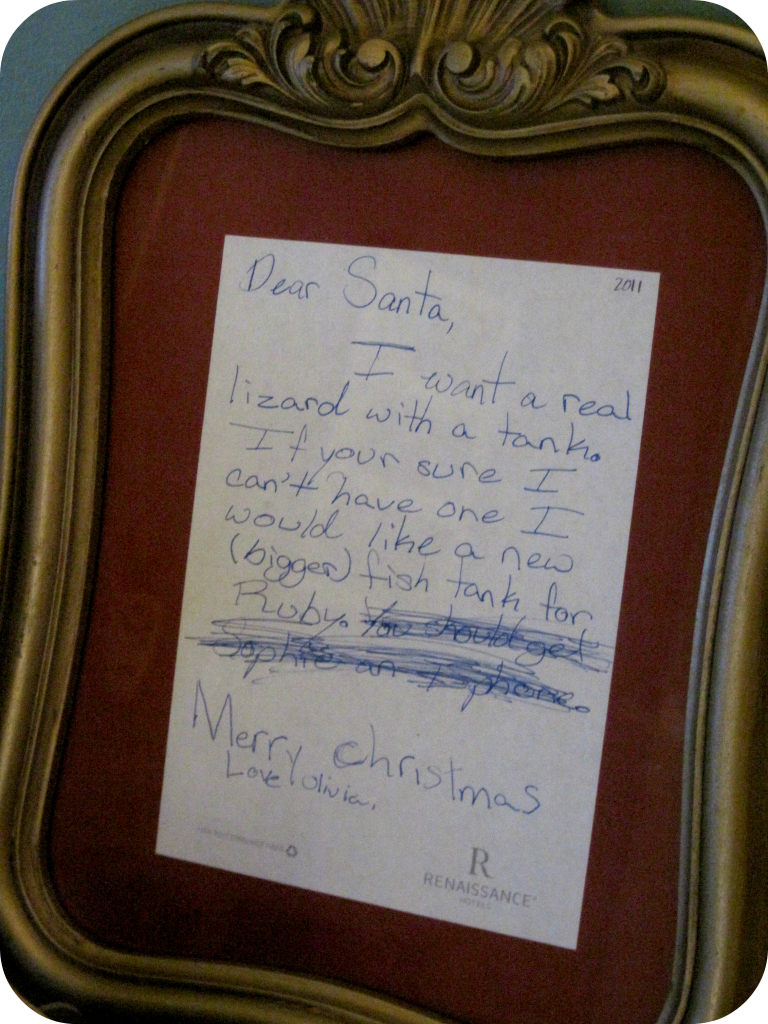 2011
Dear Santa,
I want a real
lizard with a tank.
If your sure I
can't have one I
would like a new
(bigger) fish tank for
Ruby. You should get
Sophie an I phone.
Merry christmas
Love Olivia,
R
RENAISSANCE
HOTELS